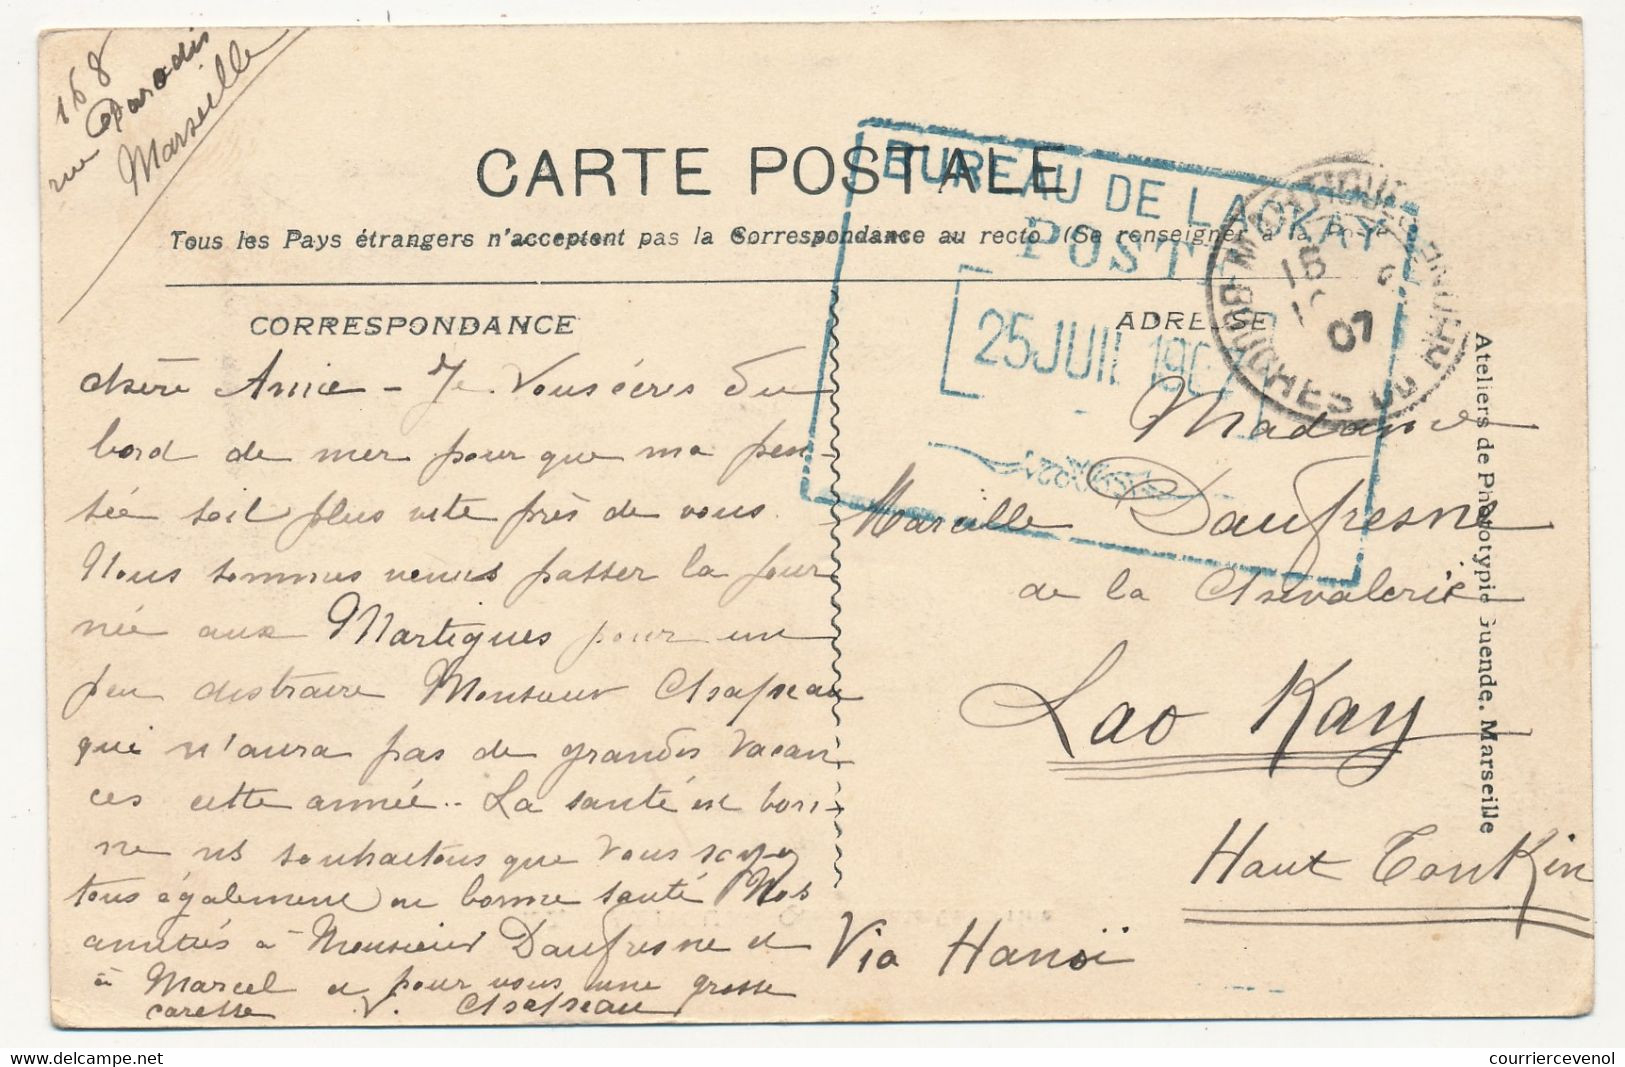 168
rue Paradis
Marseille
CARTE POSTALE
Tous les Pays étrangers n'acceptent pas la Correspondance au recto (Se renseigner à la Poste)
CORRESPONDANCE
ADRESSE
BUREAU DE LAOKAY
POST
25 JUIL 190
BOUCHES DU RHÔNE
18
07
chère Amie - Je Vous écris du
bord de mer pour que ma pen-
sée soit plus vite près de vous.
Nous sommes venus passer la jour
née aux Martigues pour un
peu distraire Monsieur Chapseau
qui n'aura pas de grandes vacan
ces cette année.. La santé est bon-
ne ns souhaitons que vous soyez
tous également en bonne santé Nos
amitiés à Monsieur Daufresne et
à Marcel et pour vous une grosse
caresse V. Chapseau
Madame
Marcille Daufresne
de la Chevalerie
Lao Kay
Haut Tonkin
Via Hanoï
Ateliers de Phototypie Guende. Marseille
courriercevenol